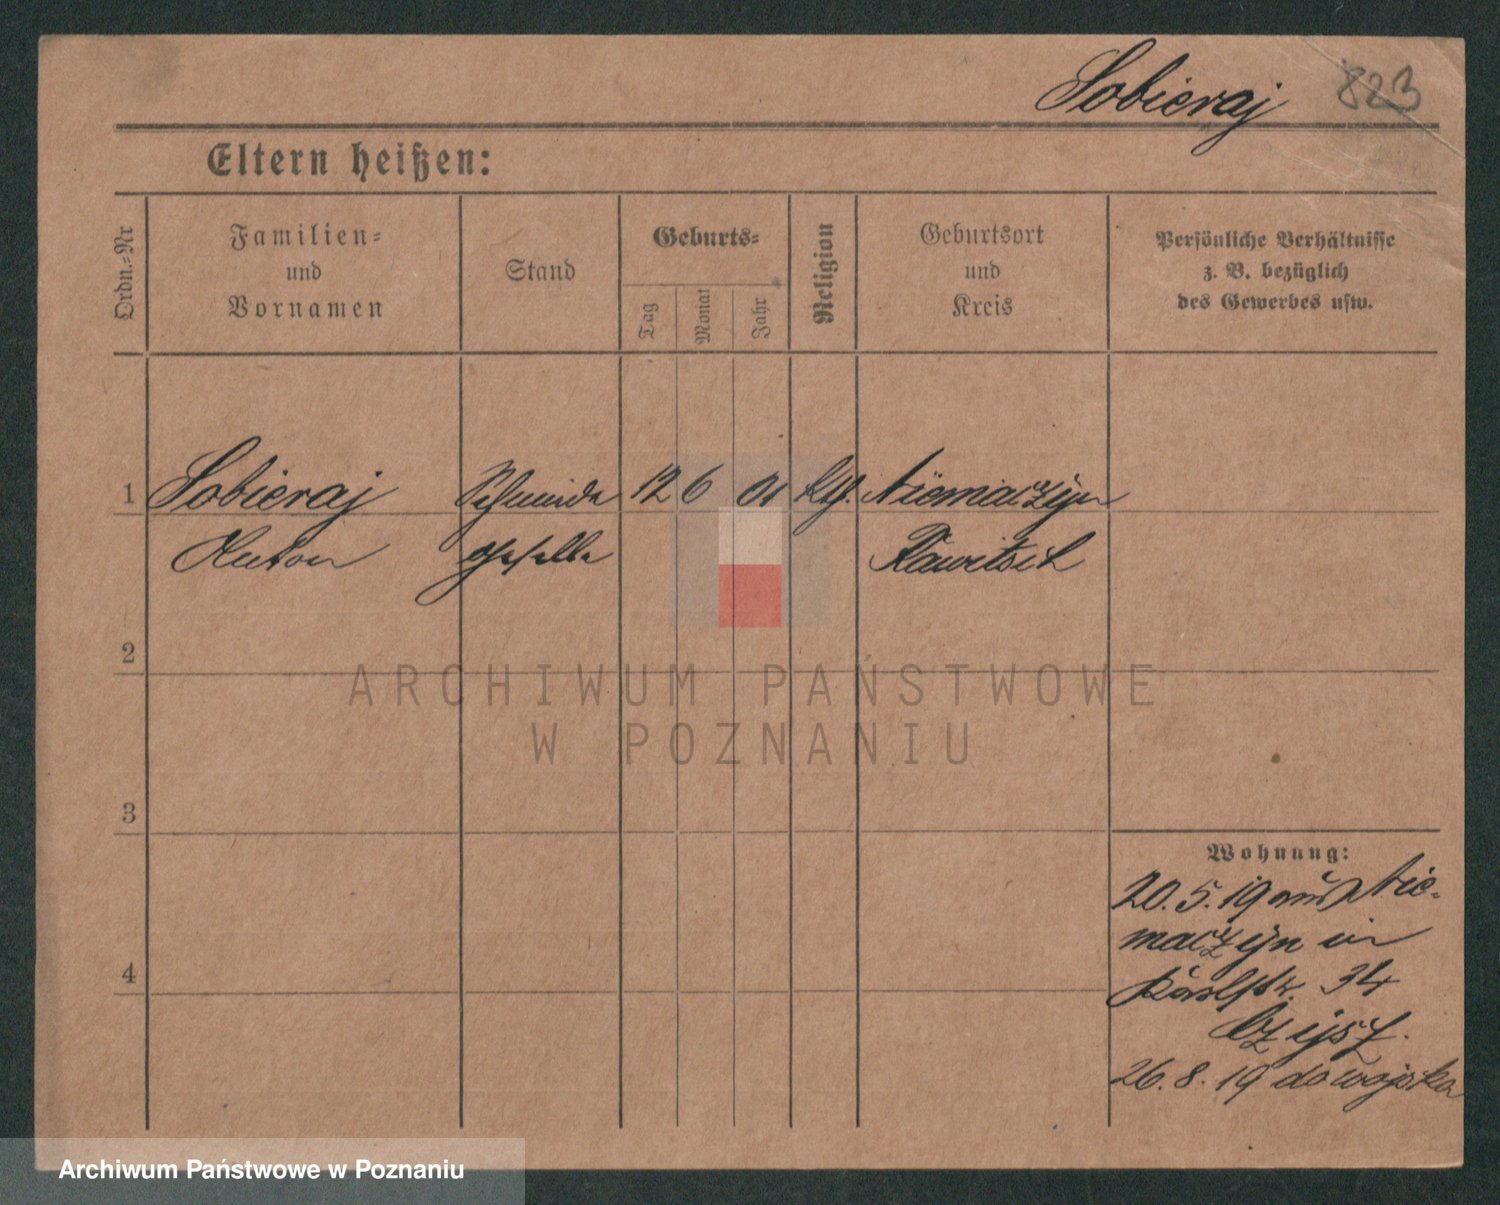 Sobieraj 823
Eltern heißen:
Ordn.-Nr
Familien-
und
Vornamen
Stand
Geburts-
Tag
Monat
Jahr
Religion
Geburtsort
und
Kreis
Persönliche Verhältnisse
z. B. bezüglich
des Gewerbes usw.
1 Sobieraj Schmiede 12 6 01 kth. Niemaczyn
Anton geselle Rawitsch
2
ARCHIWUM PAŃSTWOWE
W POZNANIU
3
Wohnung:
20.5.19 aus Nie-
maczyn in
34
4
26.8.19 do wojska
Archiwum Państwowe w Poznaniu